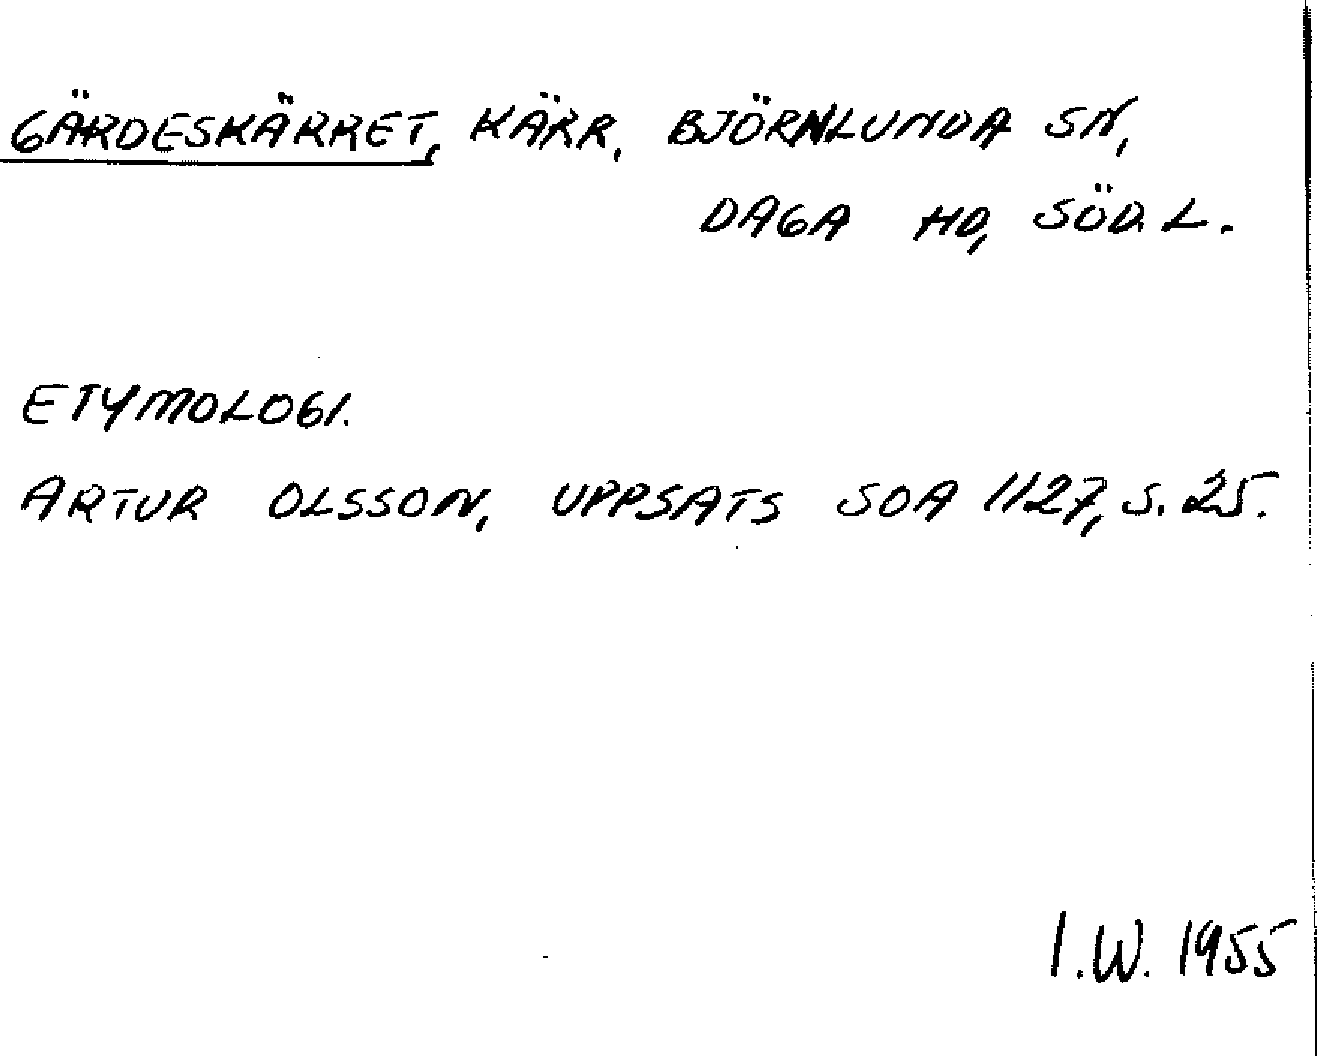 GÄRDESKÄRRET, KÄRR, BJÖRNLUNDA SN,
DAGA HD, SÖD. L.
ETYMOLOGI.
ARTUR OLSSON, UPPSATS SOA 1127, S. 25.
I.W. 1955